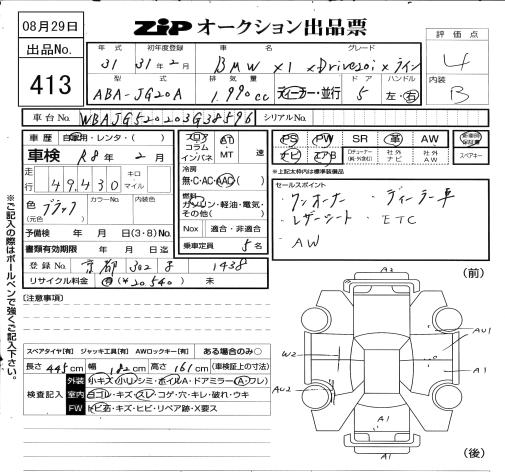 08月29日
ZiP オークション出品票
出品No.
413
評価点
4
内装
B
年式 初年度登録 車名 グレード
31 31年2月 BMW X1 xDrive20i xライン
型式 排気量 ドア ハンドル
ABA-JG20A 1,990cc ディーラー・並行 5 左・右
車台No. WBAJG520203G38596 シリアルNo.
車歴 自家用・レンタ・( )
車検 R8年2月
走行 49,430 キロ マイル
色 (元色) ブラック カラーNo. 内装色
予備検 年 月 日(3・8)No.
書類有効期限 年 月 日迄
登録No. 京都 302 1438
リサイクル料金 有(¥20,540) 未
フロア コラム インパネ AT MT 速
冷房 無・C・AC・AAC
燃料 ガソリン・軽油・電気・その他( )
Nox 適合・非適合
乗車定員 5名
PS PW SR 革 AW
ナビ エアB Dチューナー 社外ナビ 社外AW スペアキー
*上記太枠内は標準装備品
セールスポイント
・ワンオーナー ・ディーラー車
・レザーシート ・ETC
・AW
※ご記入の際はボールペンで強くご記入下さい。
[注意事項]
スペアタイヤ[有] ジャッキ工具[有] AWロックキー[有] ある場合のみ〇
長さ 445cm 幅 182cm 高さ 161cm (車検証上の寸法)
検査記入
外装 小キズ・小U・シミ・ホイルA・ドアミラー(A・ワレ)
室内 ヨゴレ・キズ・スレ・コゲ・穴・キレ・破れ・ウキ
FW トビ石・キズ・ヒビ・リペア跡・X要ス
(前)
A3
AU1
W2
A1
AU2
A1
(後)